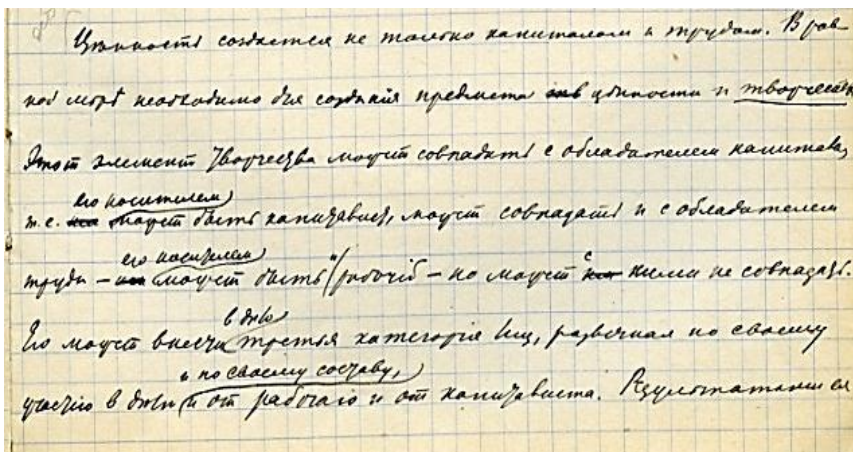 Цѣнность создается не только капиталом и трудом. В рав-
ной мѣрѣ необходимо для созданія предмета цѣнности и творчество
Этот элемент творчества может совпадать с обладателем капитала,
его носителем
т.е. может быть капиталист, может совпадать и с обладателем
его носителем
труда – может быть рабочій – но может с ними не совпадать.
в дѣло
Его может внести третья категорія лиц, различная по своему
и по своему составу,
участію в дѣлѣ и от рабочаго и от капиталиста. Результатами